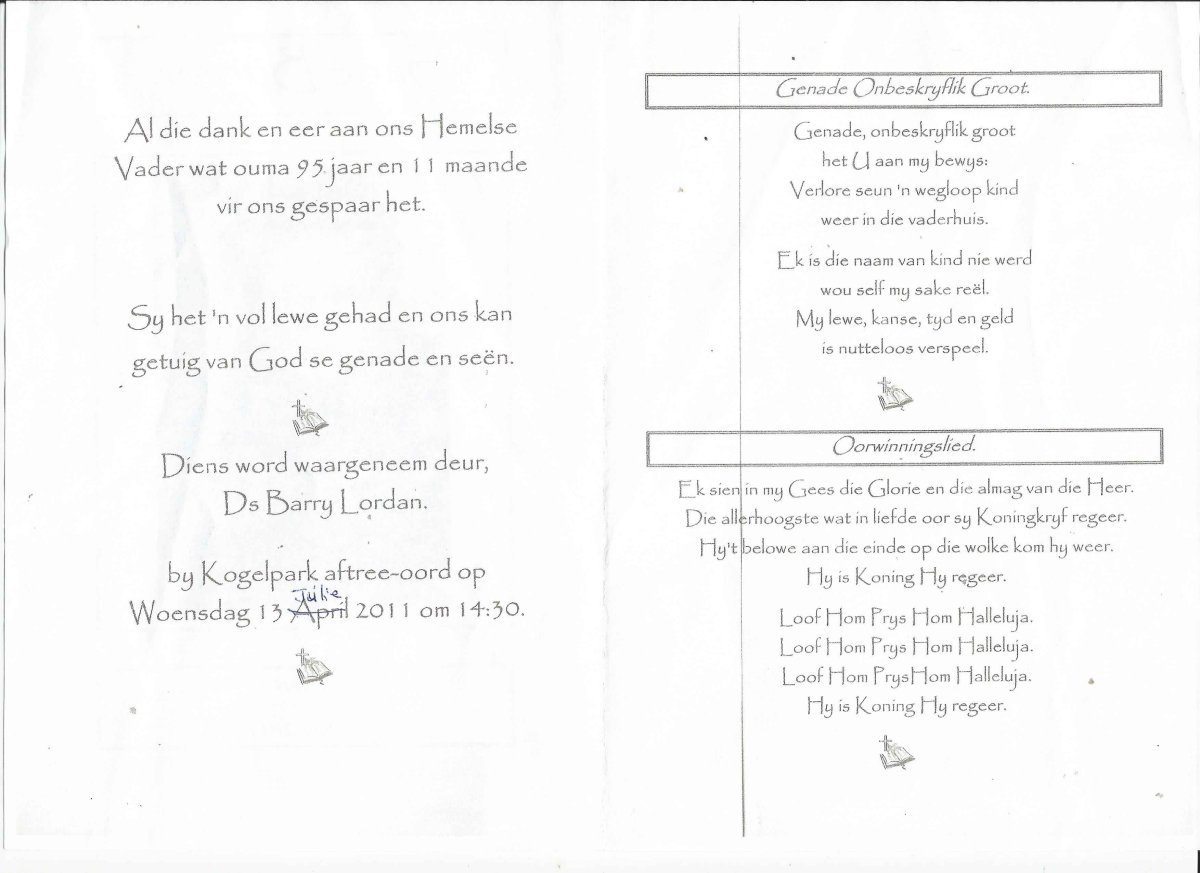 Al die dank en eer aan ons Hemelse
Vader wat ouma 95 jaar en 11 maande
vir ons gespaar het.
Sy het 'n vol lewe gehad en ons kan
getuig van God se genade en seën.
Diens word waargeneem deur,
Ds Barry Lordan.
by Kogelpark aftree-oord op
Julie
Woensdag 13 April 2011 om 14:30.
Genade Onbeskryflik Groot.
Genade, onbeskryflik groot
het U aan my bewys:
Verlore seun 'n wegloop kind
weer in die vaderhuis.
Ek is die naam van kind nie werd
wou self my sake reël.
My lewe, kanse, tyd en geld
is nutteloos verspeel.
Oorwinningslied.
Ek sien in my Gees die Glorie en die almag van die Heer.
Die allerhoogste wat in liefde oor sy Koningkryf regeer.
Hy't belowe aan die einde op die wolke kom hy weer.
Hy is Koning Hy regeer.
Loof Hom Prys Hom Halleluja.
Loof Hom Prys Hom Halleluja.
Loof Hom Prys Hom Halleluja.
Hy is Koning Hy regeer.